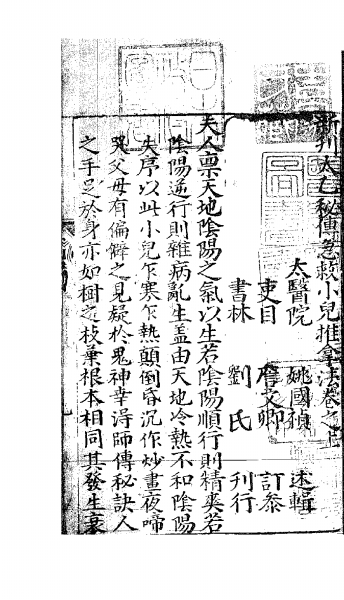 新刊太乙秘傳急救小兒推拿法卷之上
太醫院 姚國禎 述輯
吏目 詹文卿 訂叅
書林 劉氏 刊行
夫人禀天地陰陽之氣以生若陰陽順行則精爽若
陰陽逆行則雜病亂生盖由天地冷熱不和陰陽
失序以此小兒乍寒乍熱顛倒昏沉作炒晝夜啼
哭父母有偏僻之見疑於鬼神幸淂師傳秘訣人
之手足於身亦如樹之枝葉根本相同其發生衰